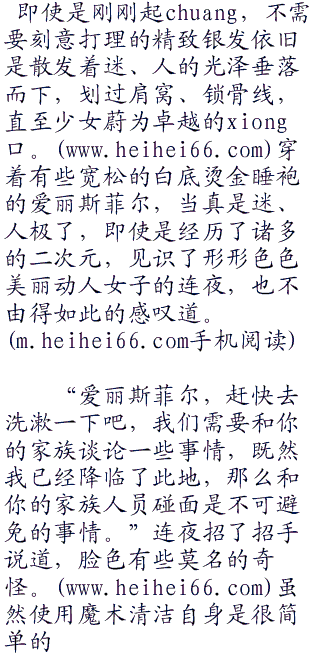 即使是刚刚起chuang，不需
要刻意打理的精致银发依旧
是散发着迷、人的光泽垂落
而下，划过肩窝、锁骨线，
直至少女蔚为卓越的xiong
口。(www.heihei66.com)穿
着有些宽松的白底烫金睡袍
的爱丽斯菲尔，当真是迷、
人极了，即使是经历了诸多
的二次元，见识了形形色色
美丽动人女子的连夜，也不
由得如此的感叹道。
(m.heihei66.com手机阅读)
“爱丽斯菲尔，赶快去
洗漱一下吧，我们需要和你
的家族谈论一些事情，既然
我已经降临了此地，那么和
你的家族人员碰面是不可避
免的事情。”连夜招了招手
说道，脸色有些莫名的奇
怪。(www.heihei66.com)虽
然使用魔术清洁自身是很简
单的